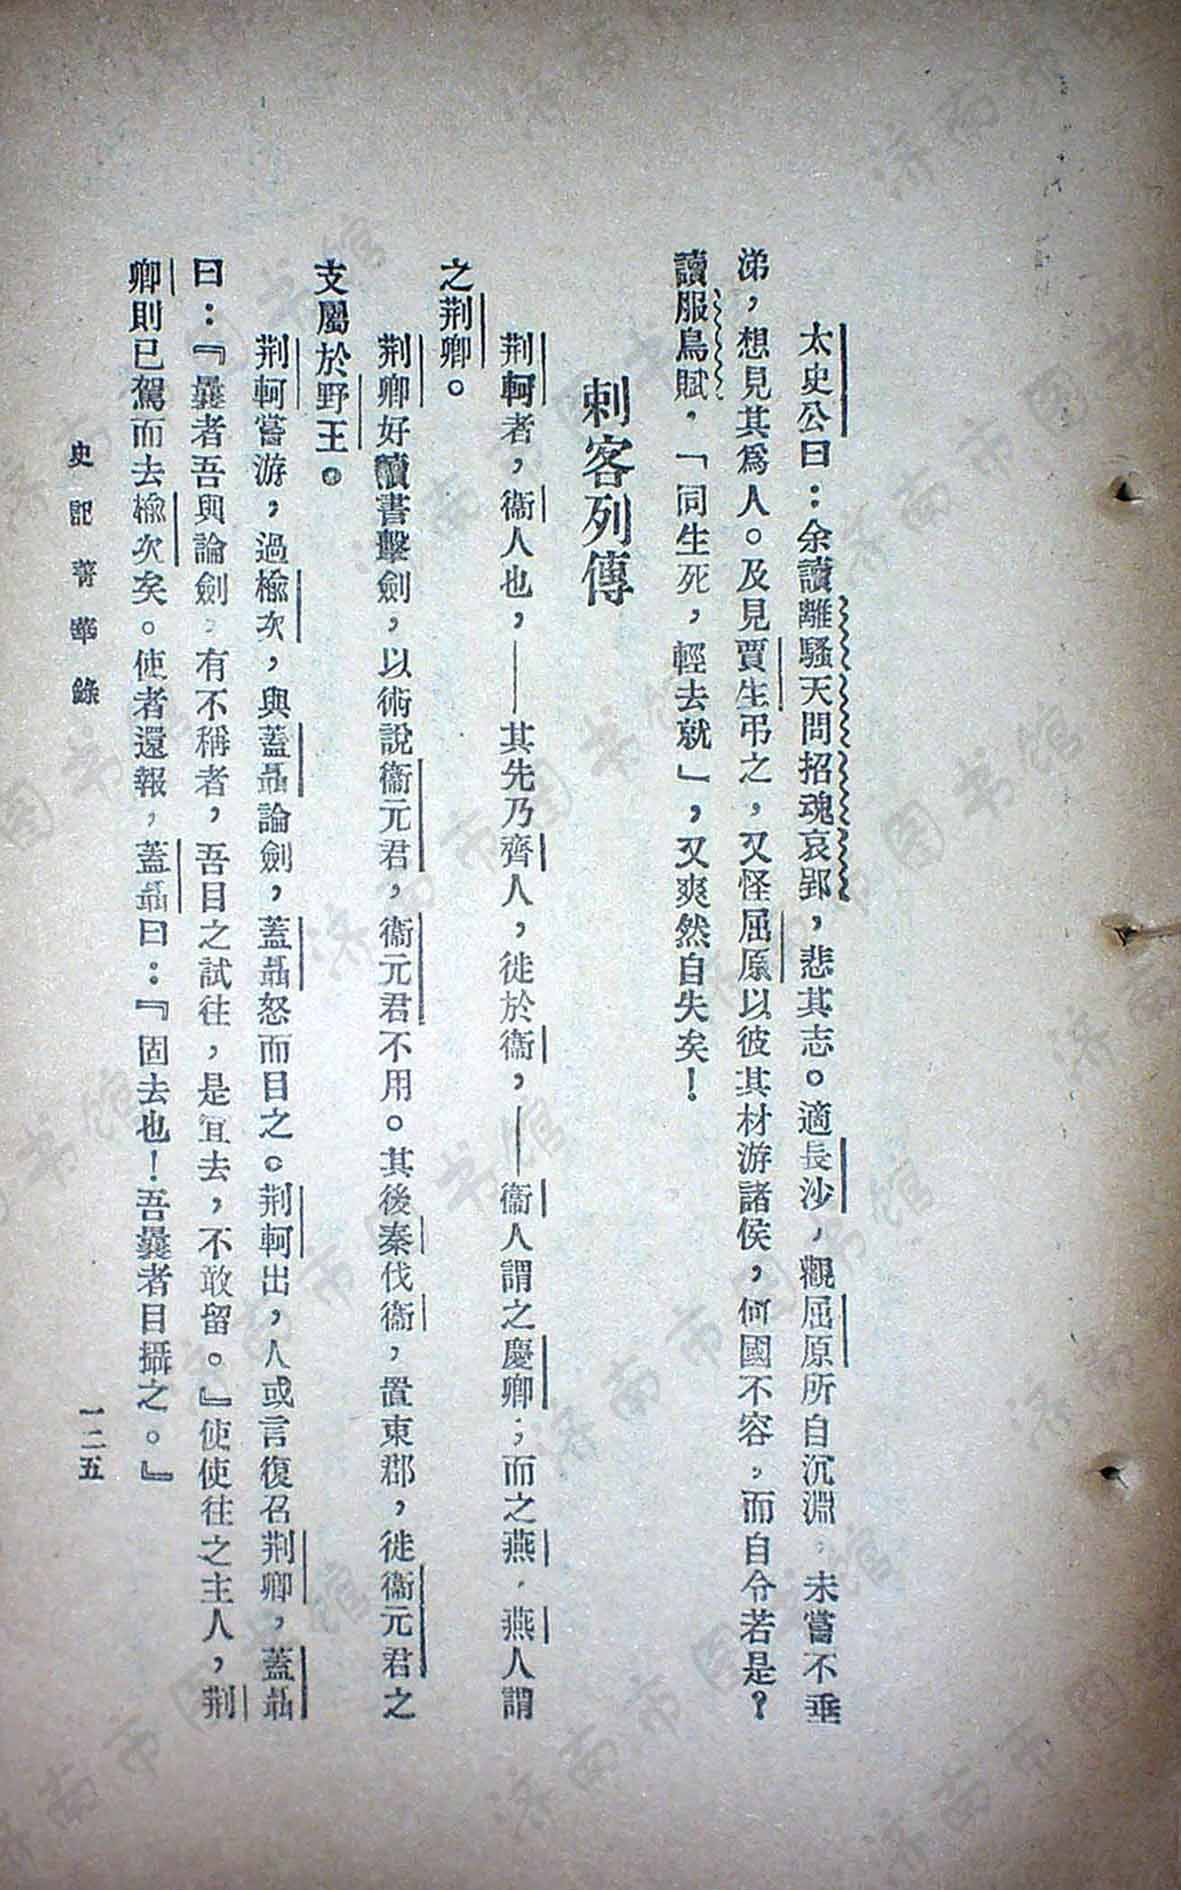 太史公曰：余讀離騷天問招魂哀郢，悲其志。適長沙，觀屈原所自沉淵，未嘗不垂
涕，想見其爲人。及見賈生弔之，又怪屈原以彼其材游諸侯，何國不容，而自令若是？
讀服鳥賦，「同生死，輕去就」，又爽然自失矣！
刺客列傳
荆軻者，衞人也，——其先乃齊人，徙於衞，——衞人謂之慶卿；而之燕，燕人謂
之荆卿。
荆卿好讀書擊劍，以術說衞元君，衞元君不用。其後秦伐衞，置東郡，徙衞元君之
支屬於野王。
荆軻嘗游，過楡次，與蓋聶論劍，蓋聶怒而目之。荆軻出，人或言復召荆卿，蓋聶
曰：『曩者吾與論劍，有不稱者，吾目之試往，是宜去，不敢留。』使使往之主人，荆
卿則已駕而去楡次矣。使者還報，蓋聶曰：『固去也！吾曩者目攝之。』
史記菁華錄
一二五
济南市图书馆